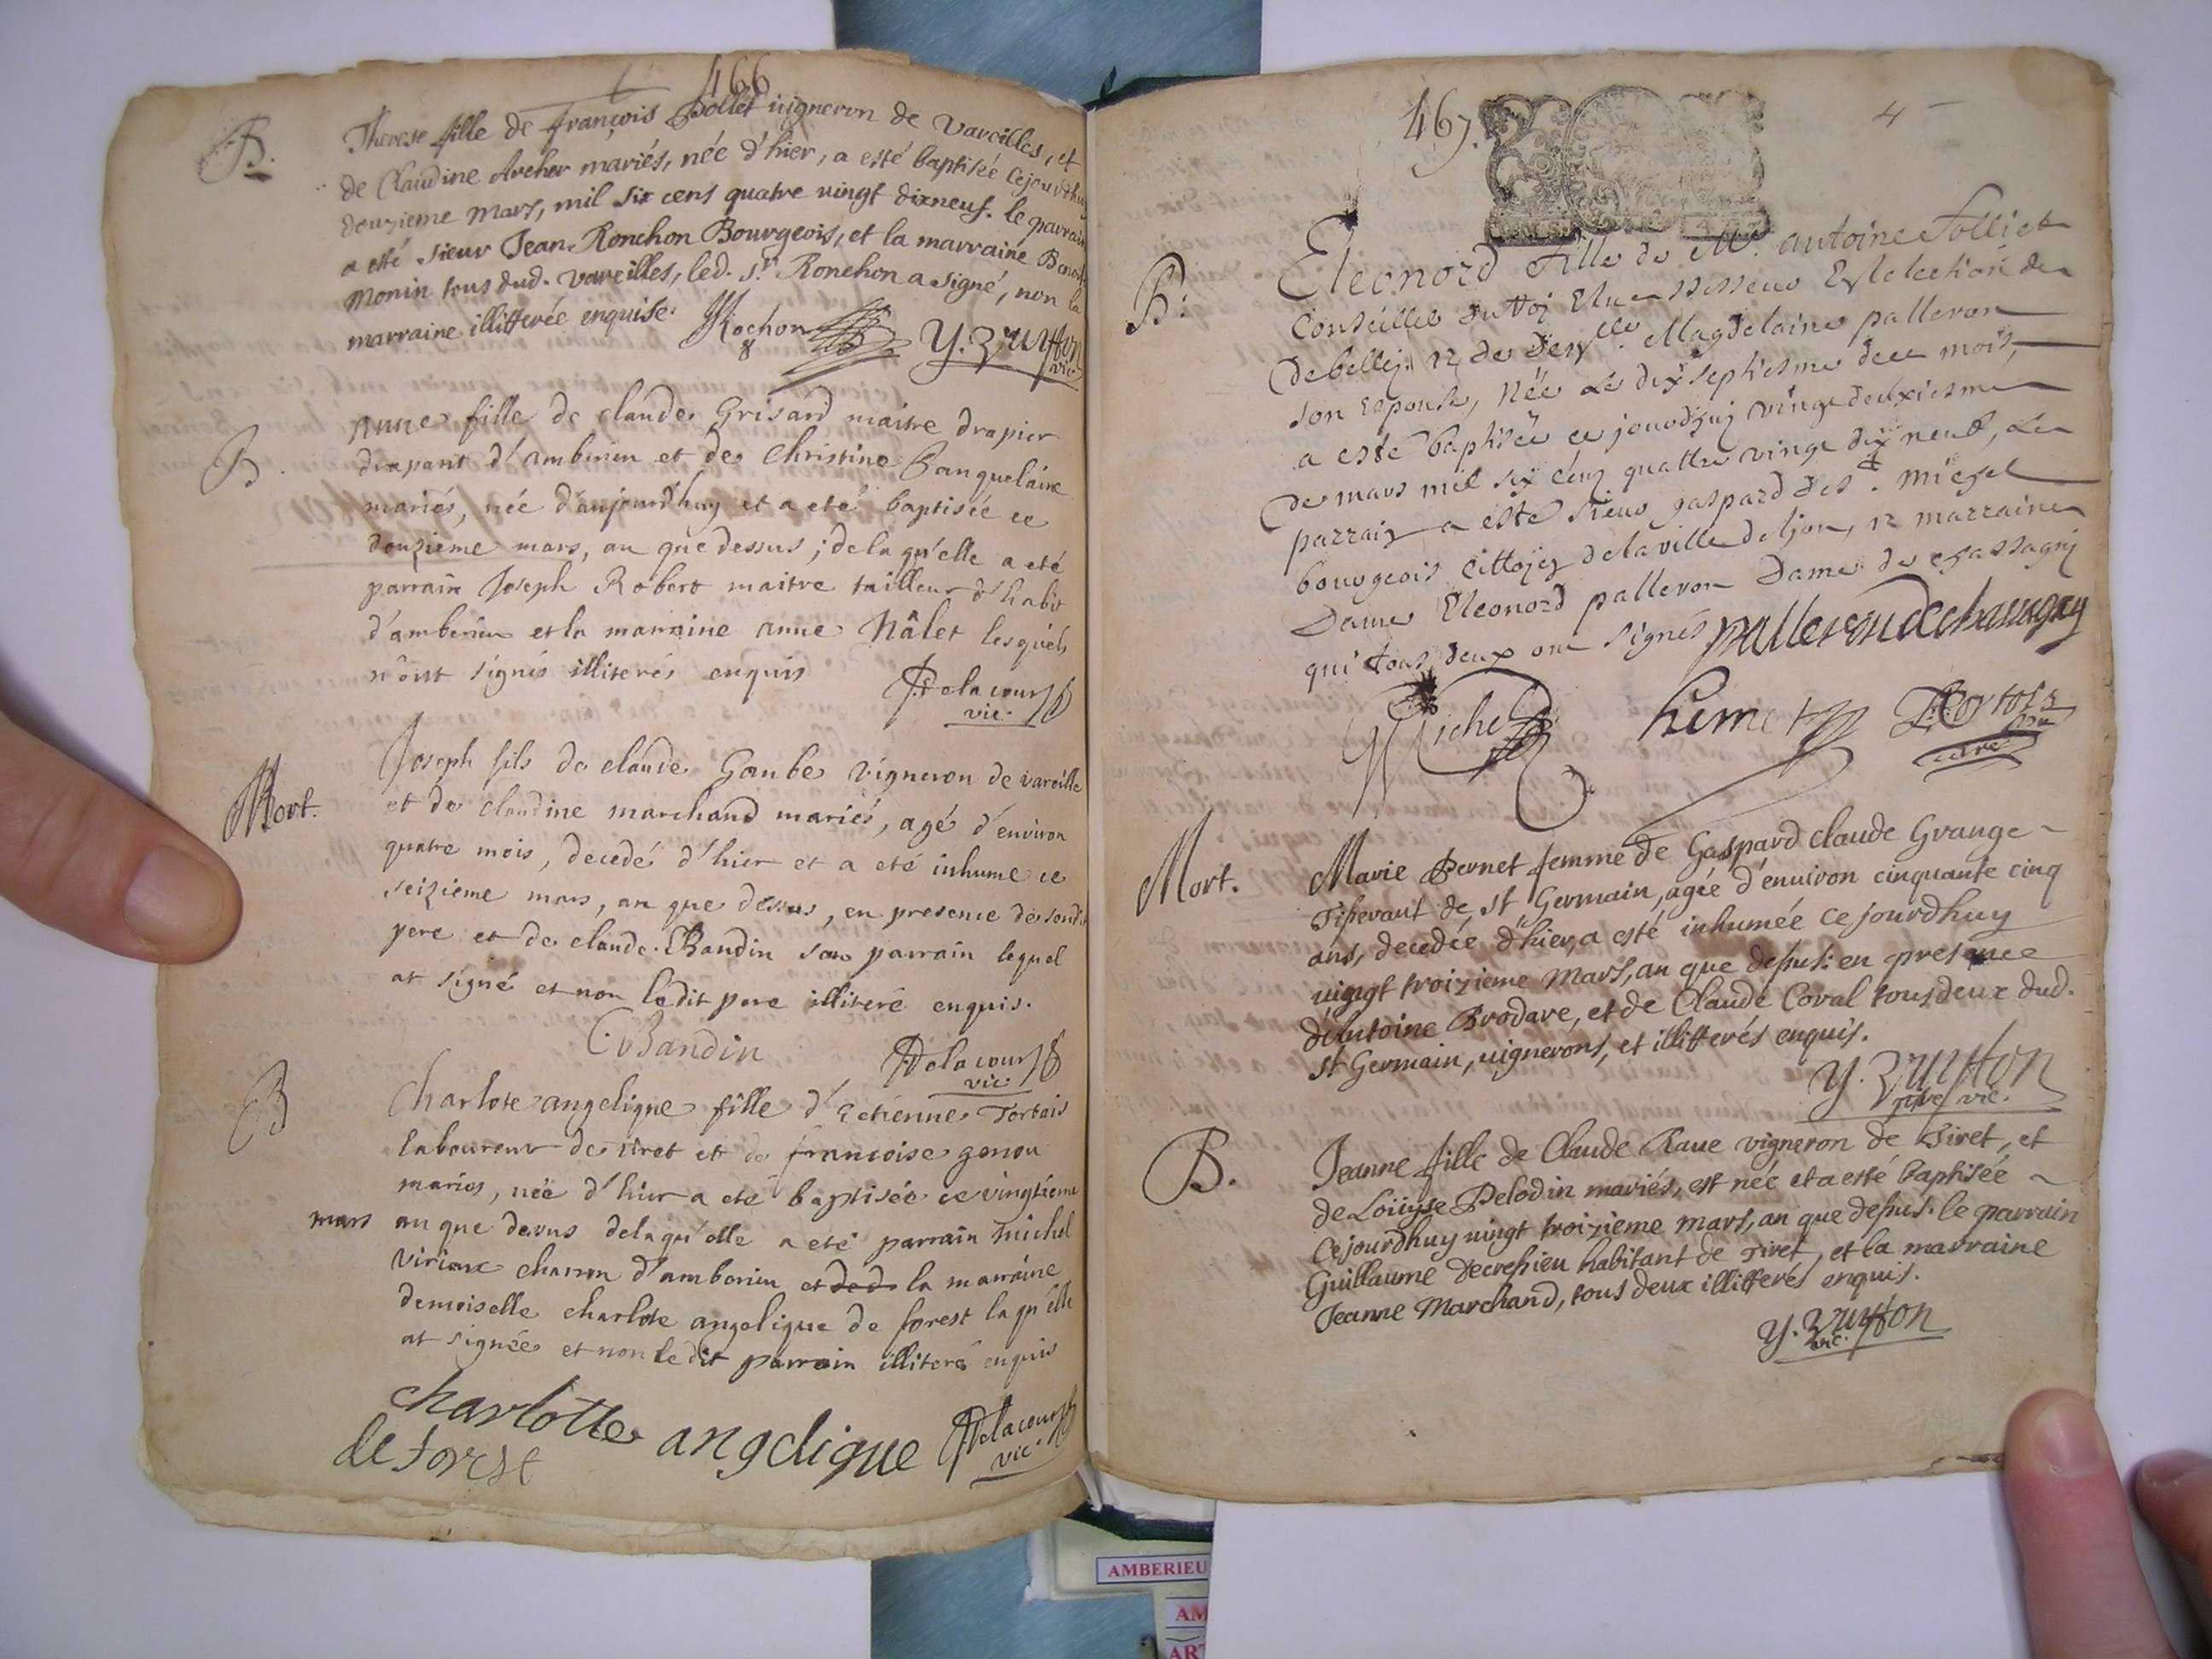 466
B.
Therese fille de françois Bollet vigneron de Vareilles, et
de Claudine Archer mariés, née d'hier, a esté baptisée cejourdhuy
douzieme mars, mil six cens quatre vingt dixneuf. le parrain
a esté sieur Jean Ronchon Bourgeois, et la marraine
Monin tous dud. vareilles, led. Sr. Ronchon a signé, non la
marraine illitterée enquise.
Rochon
vic
B.
Anne fille de claude Grisard maitre drapier
drapant d'amberieu et de Christine
mariés, née d'aujourdhuy et a eté baptisée ce
douzieme mars, an que dessus ; de la qu'elle a eté
parrain Joseph Robert maitre tailleur d'habit
d'amberieu et la marraine anne Nâlet lesquels
n'ont signés illiterés enquis
Delacour
vic.
Mort.
Joseph fils de claude Gaube vigneron de vareille
et de claudine marchand mariés, agé d'environ
quatre mois, decedé d'hier et a eté inhume ce
seizieme mars, an que dessus, en presence de sondit
pere et de claude Bandin son parrain lequel
at signé et non ledit pere illiteré enquis.
C. Bandin
Delacour
vic.
B
Charlote angelique fille d'Etienne Tortais
laboureur de tiret et de francoise genou
mariés, née d'hier a eté baptisée ce vingtieme
mars an que dessus de la qu'elle a eté parrain michel
viriaux charron d'amberieu et la marraine
demoiselle charlote angelique de forest la qu'elle
at signée et non ledit parrain illiteré enquis
charlotte angelique
de forest
Delacour
vic.
467.
4
B:
Eleonord fille de Mr. antoine Folliet
Conseiller du Roy Elu assesseur En lelection de
debelley et de Deyslle. Magdelaine palleron
son Espouse, Née Le dixseptiesme dece mois,
a esté baptisée ce jourdhuy vingt deuxiesme
de mars mil six cens quattre vingt dix neuf, Le
parrain a esté sieur gaspard des st. michel
bourgeois cittoyen delaville de lion, et marraine
Dame Eleonord palleron Dame de chassagny
qui tous deux ont signés palleron de chassagny
Michel
himet
Mort.
Marie Pernet femme de Gaspard Claude Grange
Tisserant de St Germain, agée d'environ cinquante cinq
ans, decedée d'hier, a esté inhumée cejourdhuy
vingt troizieme Mars, an que dessus: en presence
d'Antoine Brodare, et de Claude Coval tous deux dud.
St Germain, vignerons, et illitterés enquis.
vic.
B.
Jeanne fille de Claude Raue vigneron de Tiret, et
de Loüyse Pelodin mariés, est née et a esté baptisée
cejourdhuy vingt troizieme mars, an que dessus. le parrain
Guillaume decressieu habitant de Tiret, et la marraine
Jeanne Marchand, tous deux illitterés enquis.
vic.
AMBERIEU
AM
ART